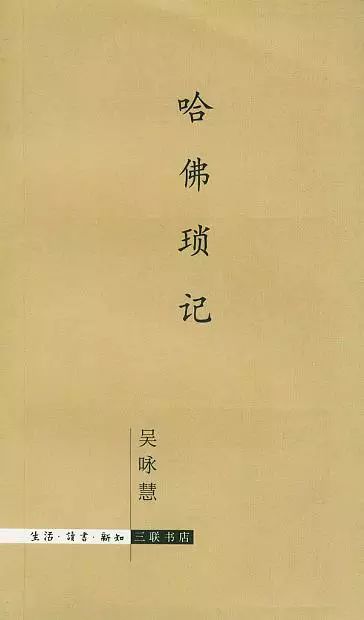 哈佛琐记
吴咏慧
生活·讀書·新知 三联书店